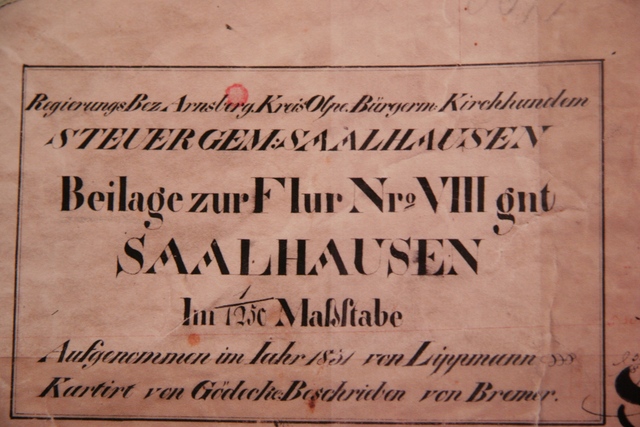 Regierungs Bez. Arnsberg. Kreis Olpe. Bürgerm. Kirchhundem
STEUER GEM: SAALHAUSEN
Beilage zur Flur Nro VIII gnt
SAALHAUSEN
Im 1/1250 Maſsſtabe
Aufgenommen im Iahr 1831 von Lippmann
Kartirt von Gödecke. Beschrieben von Bremer.